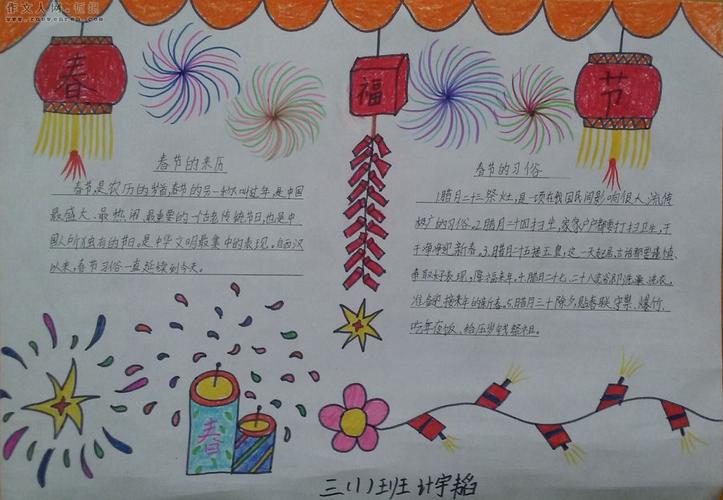 作文人网·板报
www.zuowenren.com
春
福
节
春节的来历
春节,是农历的岁首,春节的另一种叫过年,是中国
最盛大、最热闹、最重要的一个古老传统节日,也是中
国人所独有的节日,是中华文明最集中的表现。自西汉
以来,春节习俗一直延续到今天。
春节的习俗
1.腊月二十三祭灶,是一项在我国民间影响很大、流传
极广的习俗。2.腊月二十四扫尘,家家户户都要打扫卫生,干
干净净迎新春。3.腊月二十五接玉皇,这一天起居、言语都要谨慎,
争取好表现,降福来年。4.腊月二十七、二十八洗浴洗衣,
准备迎接来年的新春。5.腊月三十除夕,贴春联、守岁、爆竹、
吃年夜饭、给压岁钱、祭祖。
春
三(1)班 计宇韬